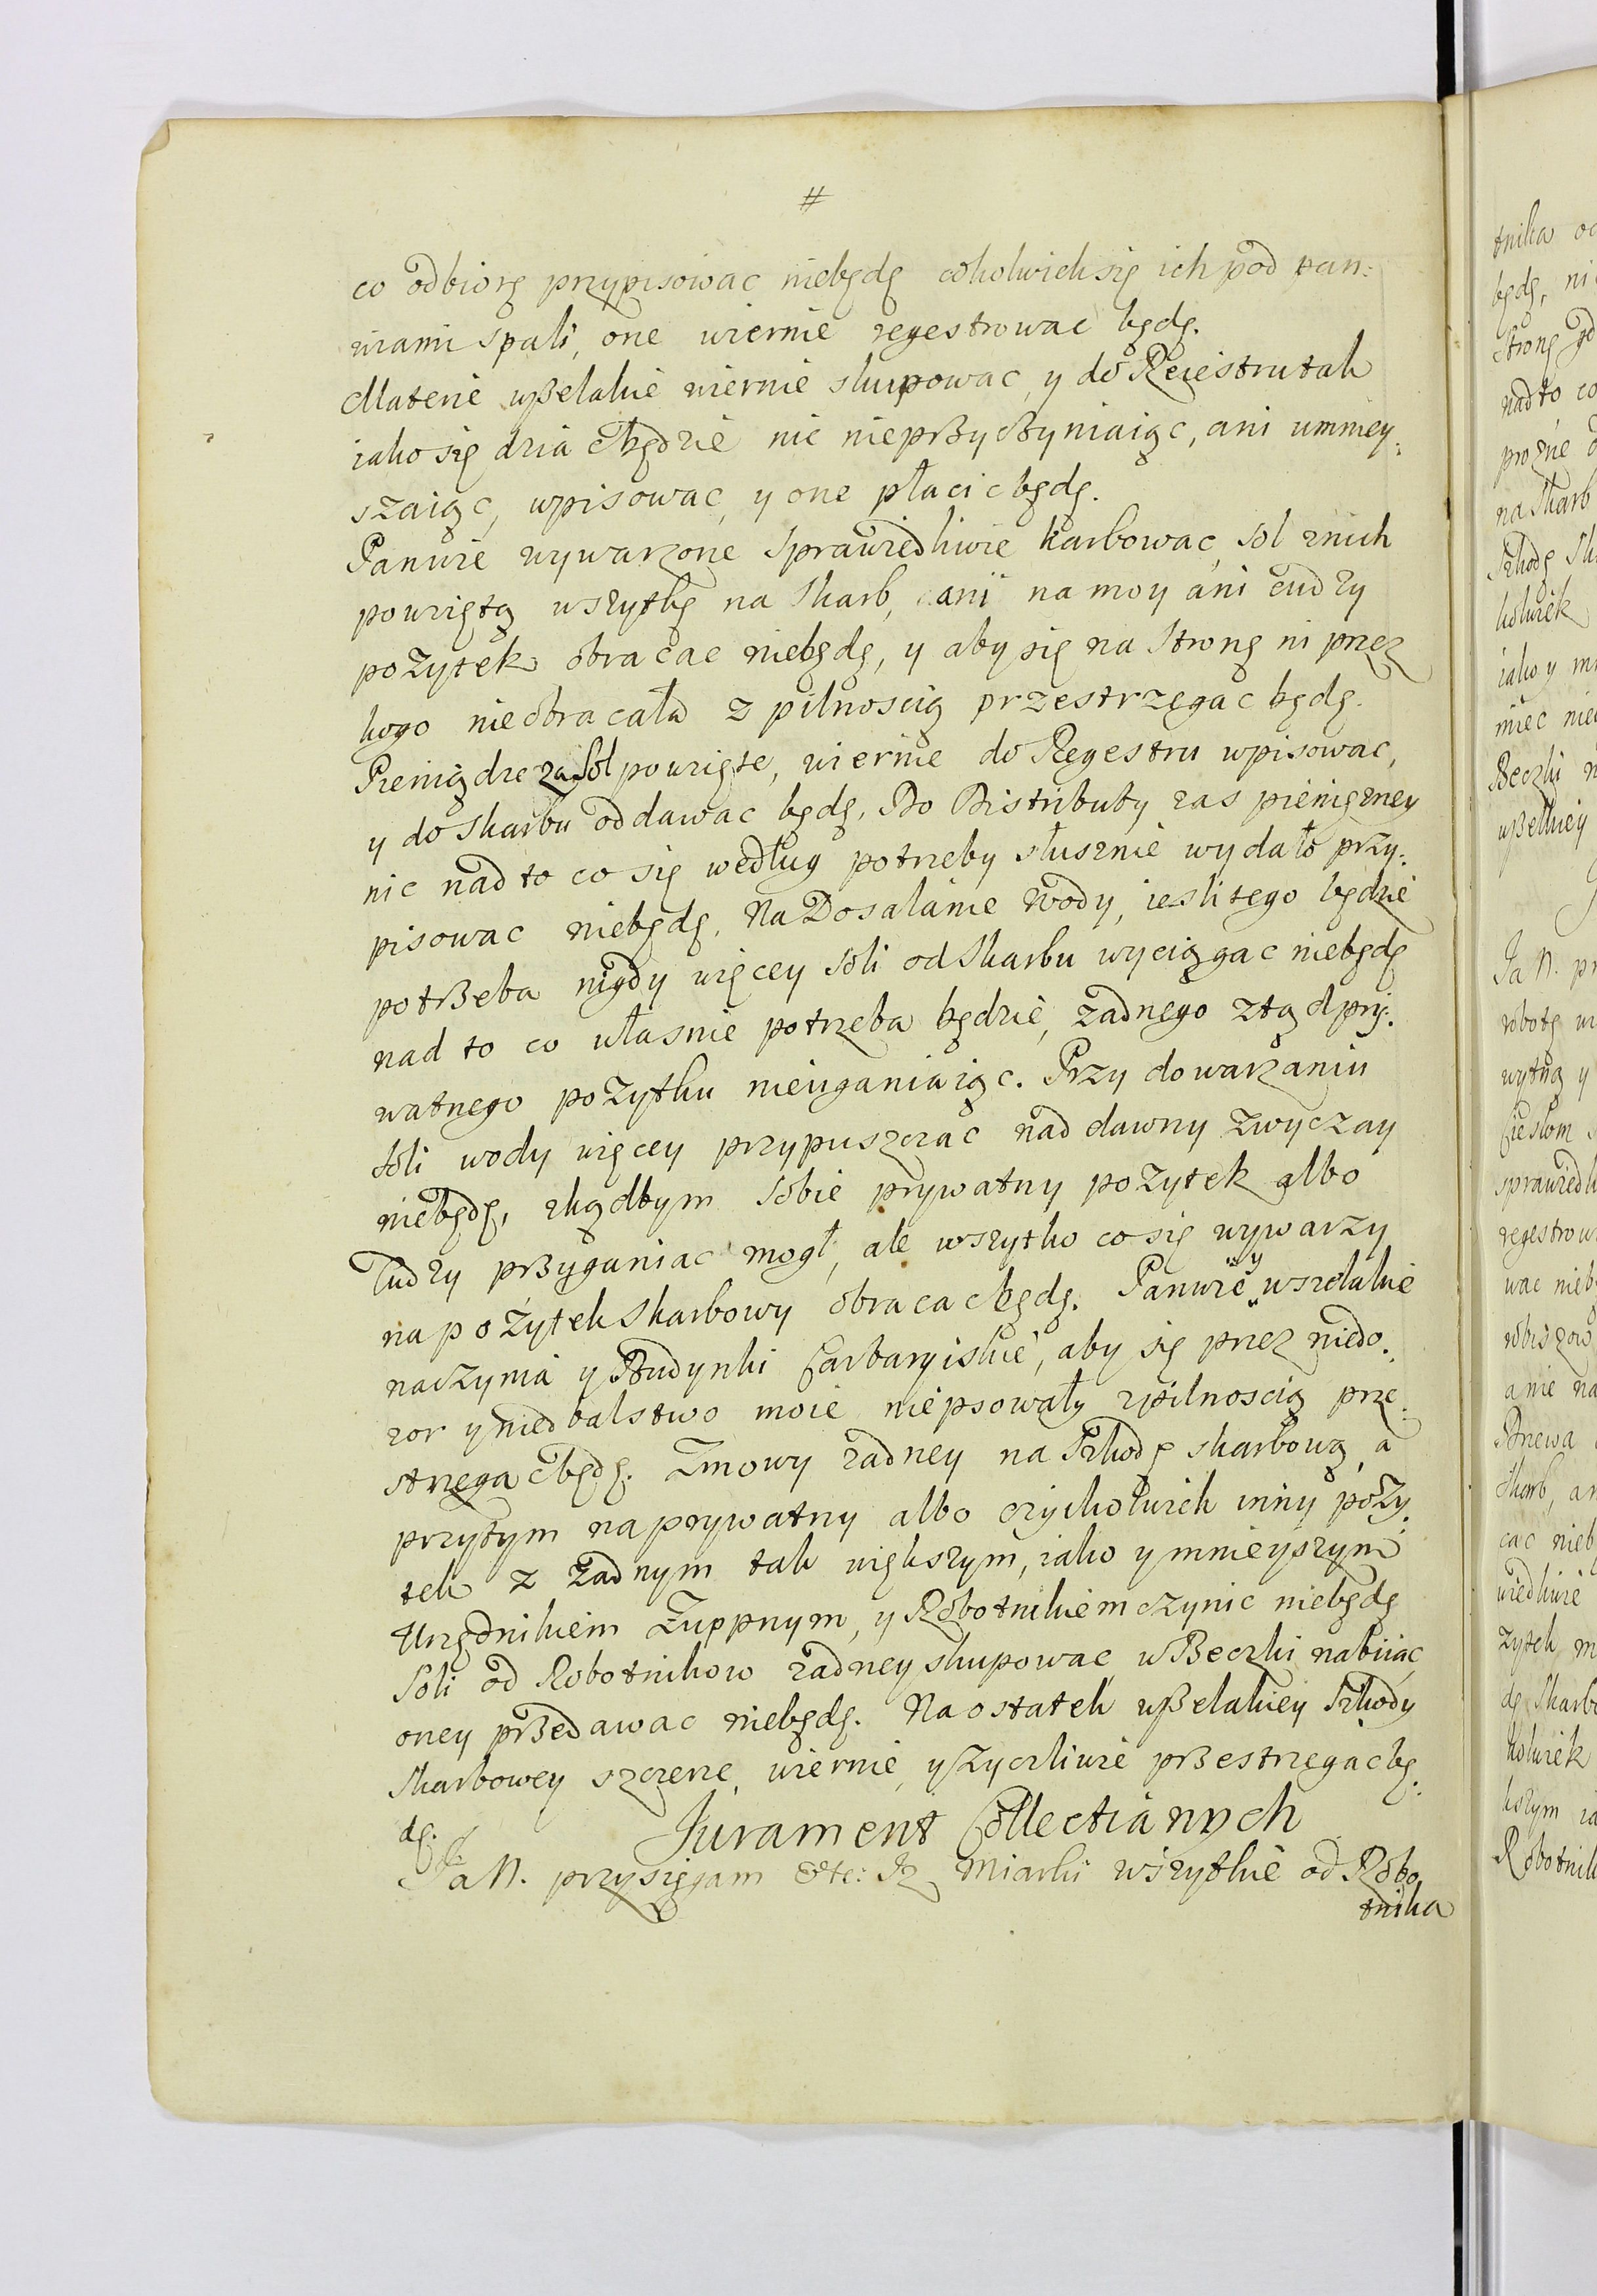 #
co odbiorę przypisowac niebędę cokolwiek się ich pod pan:
wiami spali, one wiernie regestrowac będę.
Materie wßelakie wiernie skupowac, y do Reiestru tak
iako się dziac będzie nic nieprßyczyniaiąc, ani ummiey:
szaiąc, wpisowac, y one płacic będę.
Panwie wywarzone sprawiedliwie karbowac, sol znich
powziętą wszytkę na Skarb, ani na moy ani cudzy
pożytek obracac niebędę, y aby się na stronę ni przez
kogo nieobracała z pilnoscią przestrzegac będę.
Pieniądze za sol powzięte, wiernie do Regestru wpisowac,
y do Skarbu oddawac będę. Do Distributy zas pieniężney
nic nad to co się według potrzeby słusznie wydało przy:
pisowac niebędę. Na Dosalanie wody, iesli tego będzie
potrßeba nigdy więcey soli od Skarbu wyciągac niebędę
nad to co własnie potrzeba będzie, żadnego ztąd pry:
watnego pożytku nieuganiaiąc. Przy dowarzaniu
soli wody więcey przypuszczac nad dawny zwyczay
niebędę, zkądbym sobie prywatny pożytek albo
Cudzy przyganiac mogł, ale wszytko co się wywarzy
na pożytek Skarbowy obracac będę. Panwie y wszelakie
naczynia y Budynki Carbaryiskie, aby się przez niedo:
zor y niedbalstwo moie niepsowały zpilnoscią prze:
strzegac będę. Zmowy żadney na szkodę skarbową, a
przytym na prywatny albo czyikolwiek inny poży:
tek z żadnym tak większym, iako y mnieyszym
Urzędnikiem Żuppnym, y Robotnikiem czynic niebędę
Soli od Robotnikow żadney skupowac, w Beczki nabiiac
oney przedawac niebędę. Na ostatek wßelakiey szkody
Skarbowey szczerze, wiernie, y życzliwie prßestrzegac bę:
dę.
Jurament Collectianych
Ja N. przysięgam etc: Iż Miarki wszytkie od Robo:
tnika